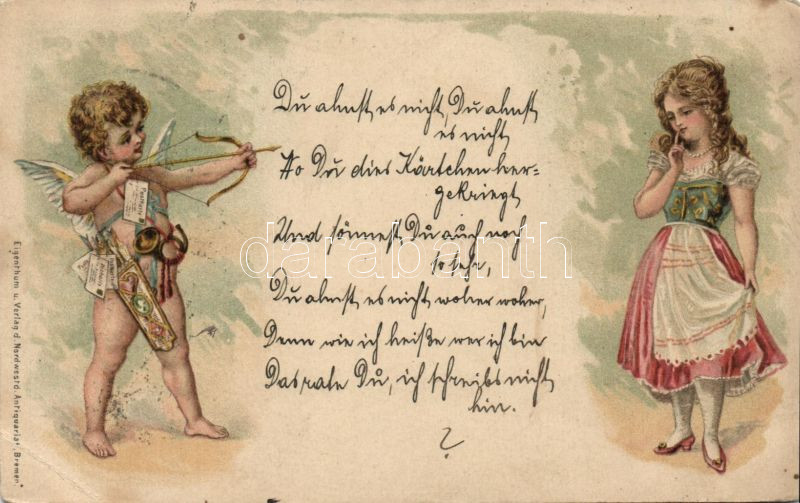 Du ahnst es nicht, Du ahnst
es nicht
Wo Du dies Kärtchen her-
gekriegt
Und sönnest Du auch noch
so sehr,
Du ahnst es nicht woher woher,
Denn wie ich heiße wer ich bin
Das rate Du, ich schreibs nicht
hin.
?
Eigenthum u. Verlag d. Nordwestd. Antiquariat, Bremen.
darabanth